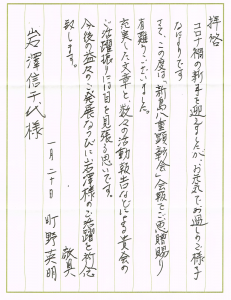 拝啓
コロナ禍の新年を迎えましたが、お元気でお過しのご様子
なによりです
さて、この度は「新島八重顕彰会」会報をご恵贈賜り
有難うございました。
充実した文章と、数々の活動報告などによる貴会の
ご活躍振りには目を見張る思いです。
今後の益々のご発展ならびに岩澤様のご活躍を祈念
致します。
敬具
一月二十日
町野英明
岩澤信千代様